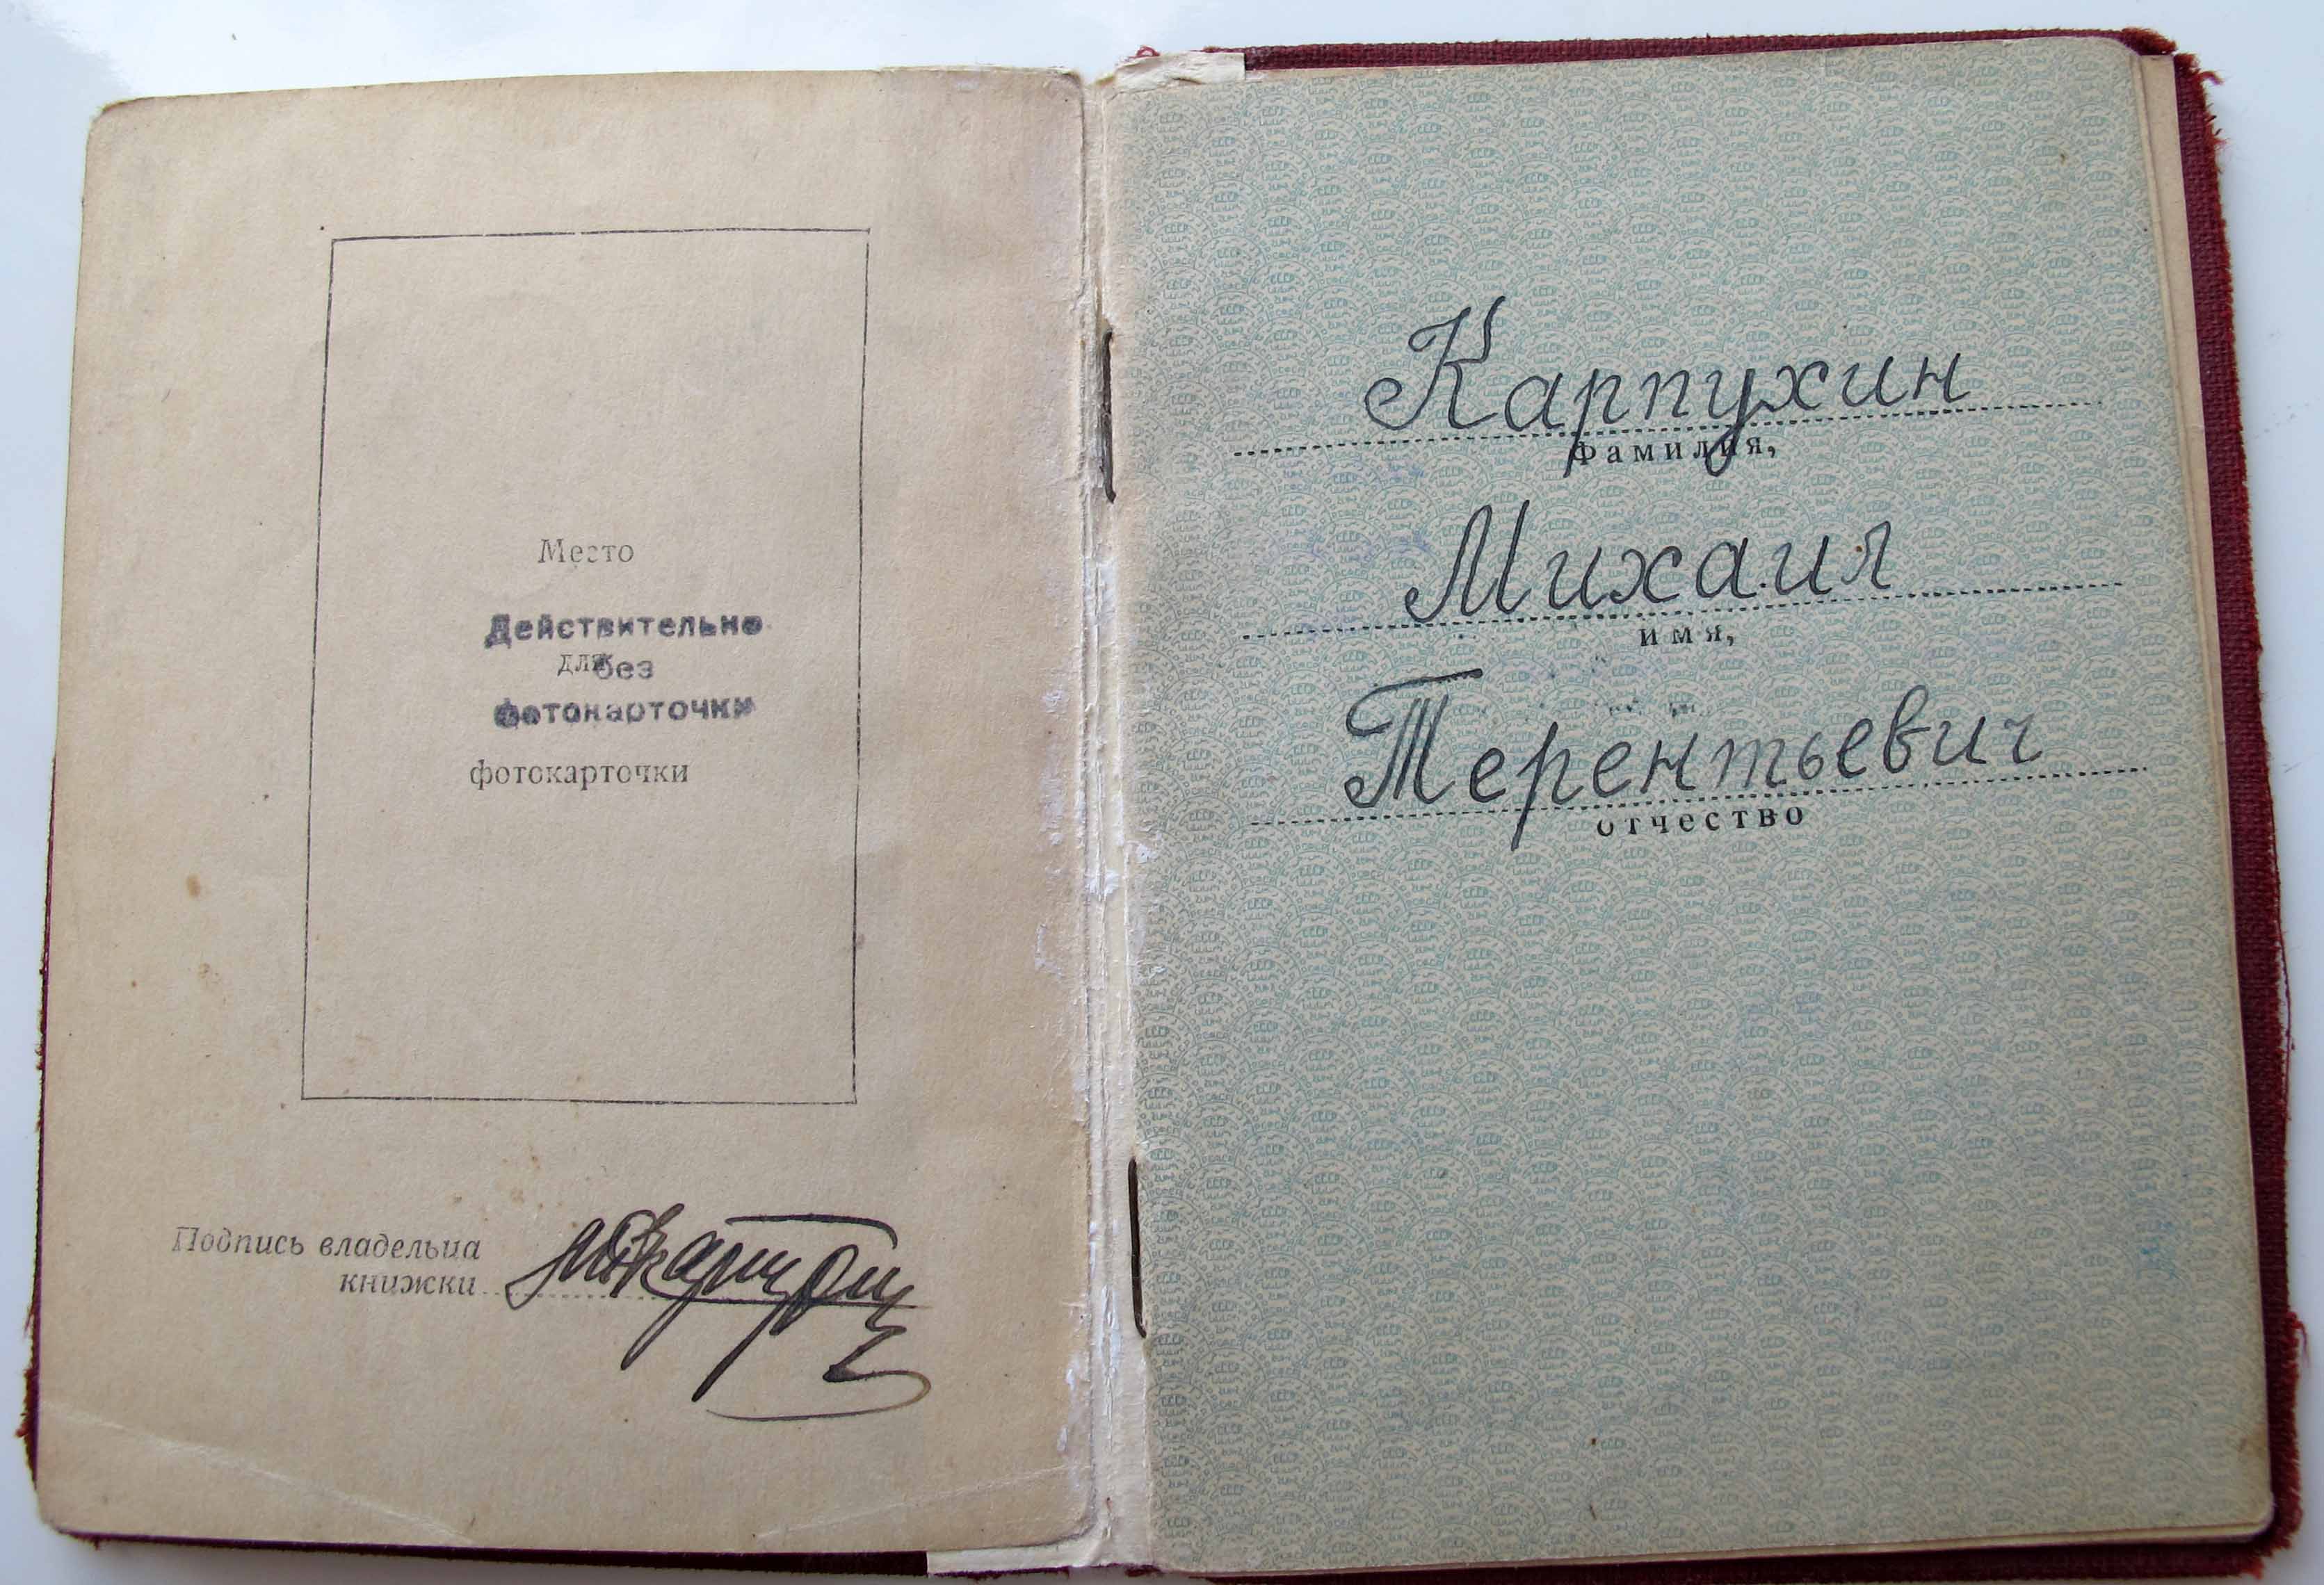 Место
Действительно
для без
фотокарточки
фотокарточки
Подпись владельца
книжки
Карпухин
фамилия,
Михаил
имя,
Терентьевич
отчество